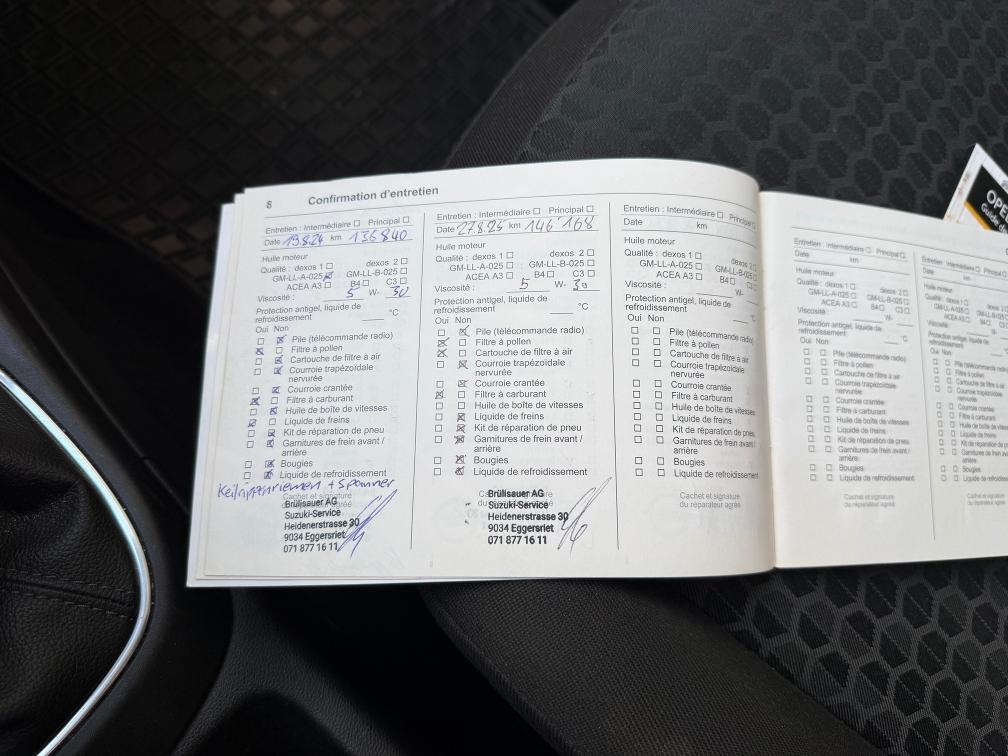 8 Confirmation d'entretien
Entretien : Intermédiaire ☐ Principal ☐
Date 19.8.24 km 136840
Huile moteur
Qualité : dexos 1 ☐ dexos 2 ☐
GM-LL-A-025 ☒ GM-LL-B-025 ☐
ACEA A3 ☐ B4 ☐ C3 ☐
Viscosité : 5 W- 30
Protection antigel, liquide de
refroidissement °C
Oui Non
☐ ☒ Pile (télécommande radio)
☒ ☐ Filtre à pollen
☐ ☒ Cartouche de filtre à air
☐ ☒ Courroie trapézoïdale
nervurée
☐ ☒ Courroie crantée
☒ ☐ Filtre à carburant
☐ ☒ Huile de boîte de vitesses
☒ ☐ Liquide de freins
☐ ☒ Kit de réparation de pneu
☐ ☒ Garnitures de frein avant /
arrière
☐ ☒ Bougies
☐ ☒ Liquide de refroidissement
Keilrippenriemen + Spanner
Cachet et signature
Brülisauer AG
Suzuki-Service
Heidenerstrasse 30
9034 Eggersriet
071 877 16 11
Entretien : Intermédiaire ☐ Principal ☐
Date 27.8.25 km 146 168
Huile moteur
Qualité : dexos 1 ☐ dexos 2 ☐
GM-LL-A-025 ☐ GM-LL-B-025 ☐
ACEA A3 ☐ B4 ☐ C3 ☐
Viscosité : 5 W- 30
Protection antigel, liquide de
refroidissement °C
Oui Non
☐ ☒ Pile (télécommande radio)
☒ ☐ Filtre à pollen
☒ ☐ Cartouche de filtre à air
☐ ☒ Courroie trapézoïdale
nervurée
☐ ☒ Courroie crantée
☒ ☐ Filtre à carburant
☐ ☐ Huile de boîte de vitesses
☐ ☒ Liquide de freins
☐ ☒ Kit de réparation de pneu
☐ ☒ Garnitures de frein avant /
arrière
☐ ☒ Bougies
☐ ☒ Liquide de refroidissement
Brülisauer AG
Suzuki-Service
Heidenerstrasse 30
9034 Eggersriet
071 877 16 11
Entretien : Intermédiaire ☐ Principal
Date km
Huile moteur
Qualité : dexos 1 ☐ dexos 2 ☐
GM-LL-A-025 ☐ GM-LL-B-025
ACEA A3 ☐ B4 ☐ C3 ☐
Viscosité : W-
Protection antigel, liquide de
refroidissement °C
Oui Non
☐ ☐ Pile (télécommande radio)
☐ ☐ Filtre à pollen
☐ ☐ Cartouche de filtre à air
☐ ☐ Courroie trapézoïdale
nervurée
☐ ☐ Courroie crantée
☐ ☐ Filtre à carburant
☐ ☐ Huile de boîte de vitesses
☐ ☐ Liquide de freins
☐ ☐ Kit de réparation de pneu
☐ ☐ Garnitures de frein avant /
arrière
☐ ☐ Bougies
☐ ☐ Liquide de refroidissement
Cachet et signature
du réparateur agréé
Entretien : Intermédiaire ☐ Principal ☐
Date km
Huile moteur
Qualité : dexos 1 ☐ dexos 2 ☐
GM-LL-A-025 ☐ GM-LL-B-025 ☐
ACEA A3 ☐ B4 ☐ C3 ☐
Viscosité : W-
Protection antigel, liquide de
refroidissement °C
Oui Non
☐ ☐ Pile (télécommande radio)
☐ ☐ Filtre à pollen
☐ ☐ Cartouche de filtre à air
☐ ☐ Courroie trapézoïdale
nervurée
☐ ☐ Courroie crantée
☐ ☐ Filtre à carburant
☐ ☐ Huile de boîte de vitesses
☐ ☐ Liquide de freins
☐ ☐ Kit de réparation de pneu
☐ ☐ Garnitures de frein avant /
arrière
☐ ☐ Bougies
☐ ☐ Liquide de refroidissement
Cachet et signature
du réparateur agréé
Entretien : Intermédiaire ☐
Date km
Huile moteur
Qualité : dexos 1 ☐
GM-LL-A-025 ☐
ACEA A3 ☐
Viscosité :
Protection antigel, liquide
refroidissement
Oui Non
☐ ☐ Pile (télécommande
☐ ☐ Filtre à pollen
☐ ☐ Cartouche de filtre
☐ ☐ Courroie trapézoïdale
nervurée
☐ ☐ Courroie crantée
☐ ☐ Filtre à carburant
☐ ☐ Huile de boîte de
☐ ☐ Liquide de freins
☐ ☐ Kit de réparation
☐ ☐ Garnitures de frein
arrière
☐ ☐ Bougies
☐ ☐ Liquide de
Cachet et signature
du réparateur agréé
OPE